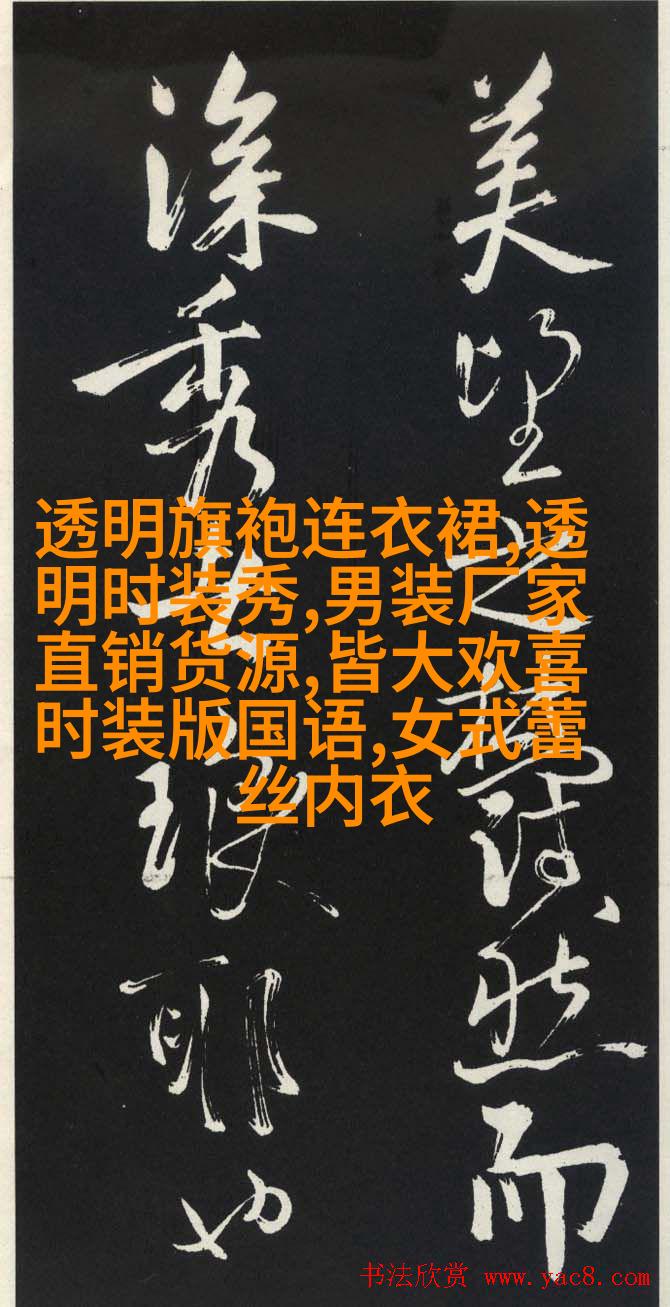 美望之蔚然而
深秀者琅耶也
透明旗袍连衣裙,透
明时装秀,男装厂家
直销货源,皆大欢喜
时装版国语,女式蕾
丝内衣
书法欣赏 www.yac8.com